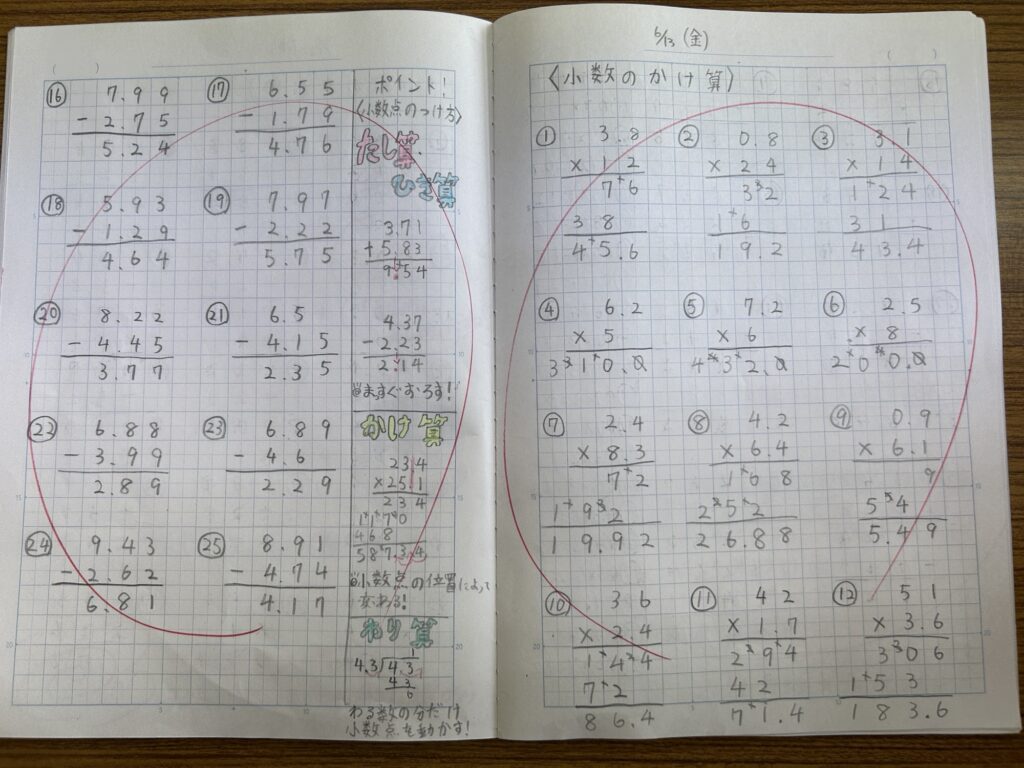 ⑯ 7.99 ⑰ 6.55
− 2.75 − 1.79
5.24 4.76
⑱ 5.93 ⑲ 7.97
− 1.29 − 2.22
4.64 5.75
⑳ 8.22 ㉑ 6.5
− 4.45 − 4.15
3.77 2.35
㉒ 6.88 ㉓ 6.89
− 3.99 − 4.6
2.89 2.29
㉔ 9.43 ㉕ 8.91
− 2.62 − 4.74
6.81 4.17
ポイント!
〈小数点のつけ方〉
たし算
ひき算
3.71
+5.83
9.54
4.37
−2.23
2.14
まっすぐおろす!
かけ算
234
×251
234
1170
468
587.34
小数点の位置によって
変わる!
わり算
1
4.3)4.3
43
わる数の分だけ
小数点を動かす!
6/13 (金)
〈小数のかけ算〉
① 3.8 ② 0.8 ③ 3.1
×12 ×24 ×14
76 32 124
38 16 31
45.6 19.2 43.4
④ 6.2 ⑤ 7.2 ⑥ 2.5
×5 ×6 ×8
310.0 432.0 200.0
⑦ 2.4 ⑧ 4.2 ⑨ 0.9
×8.3 ×6.4 ×6.1
72 168 9
192 252 54
19.92 26.88 5.49
⑩ 36 ⑪ 42 ⑫ 51
×2.4 ×1.7 ×3.6
144 294 306
72 42 153
86.4 71.4 183.6